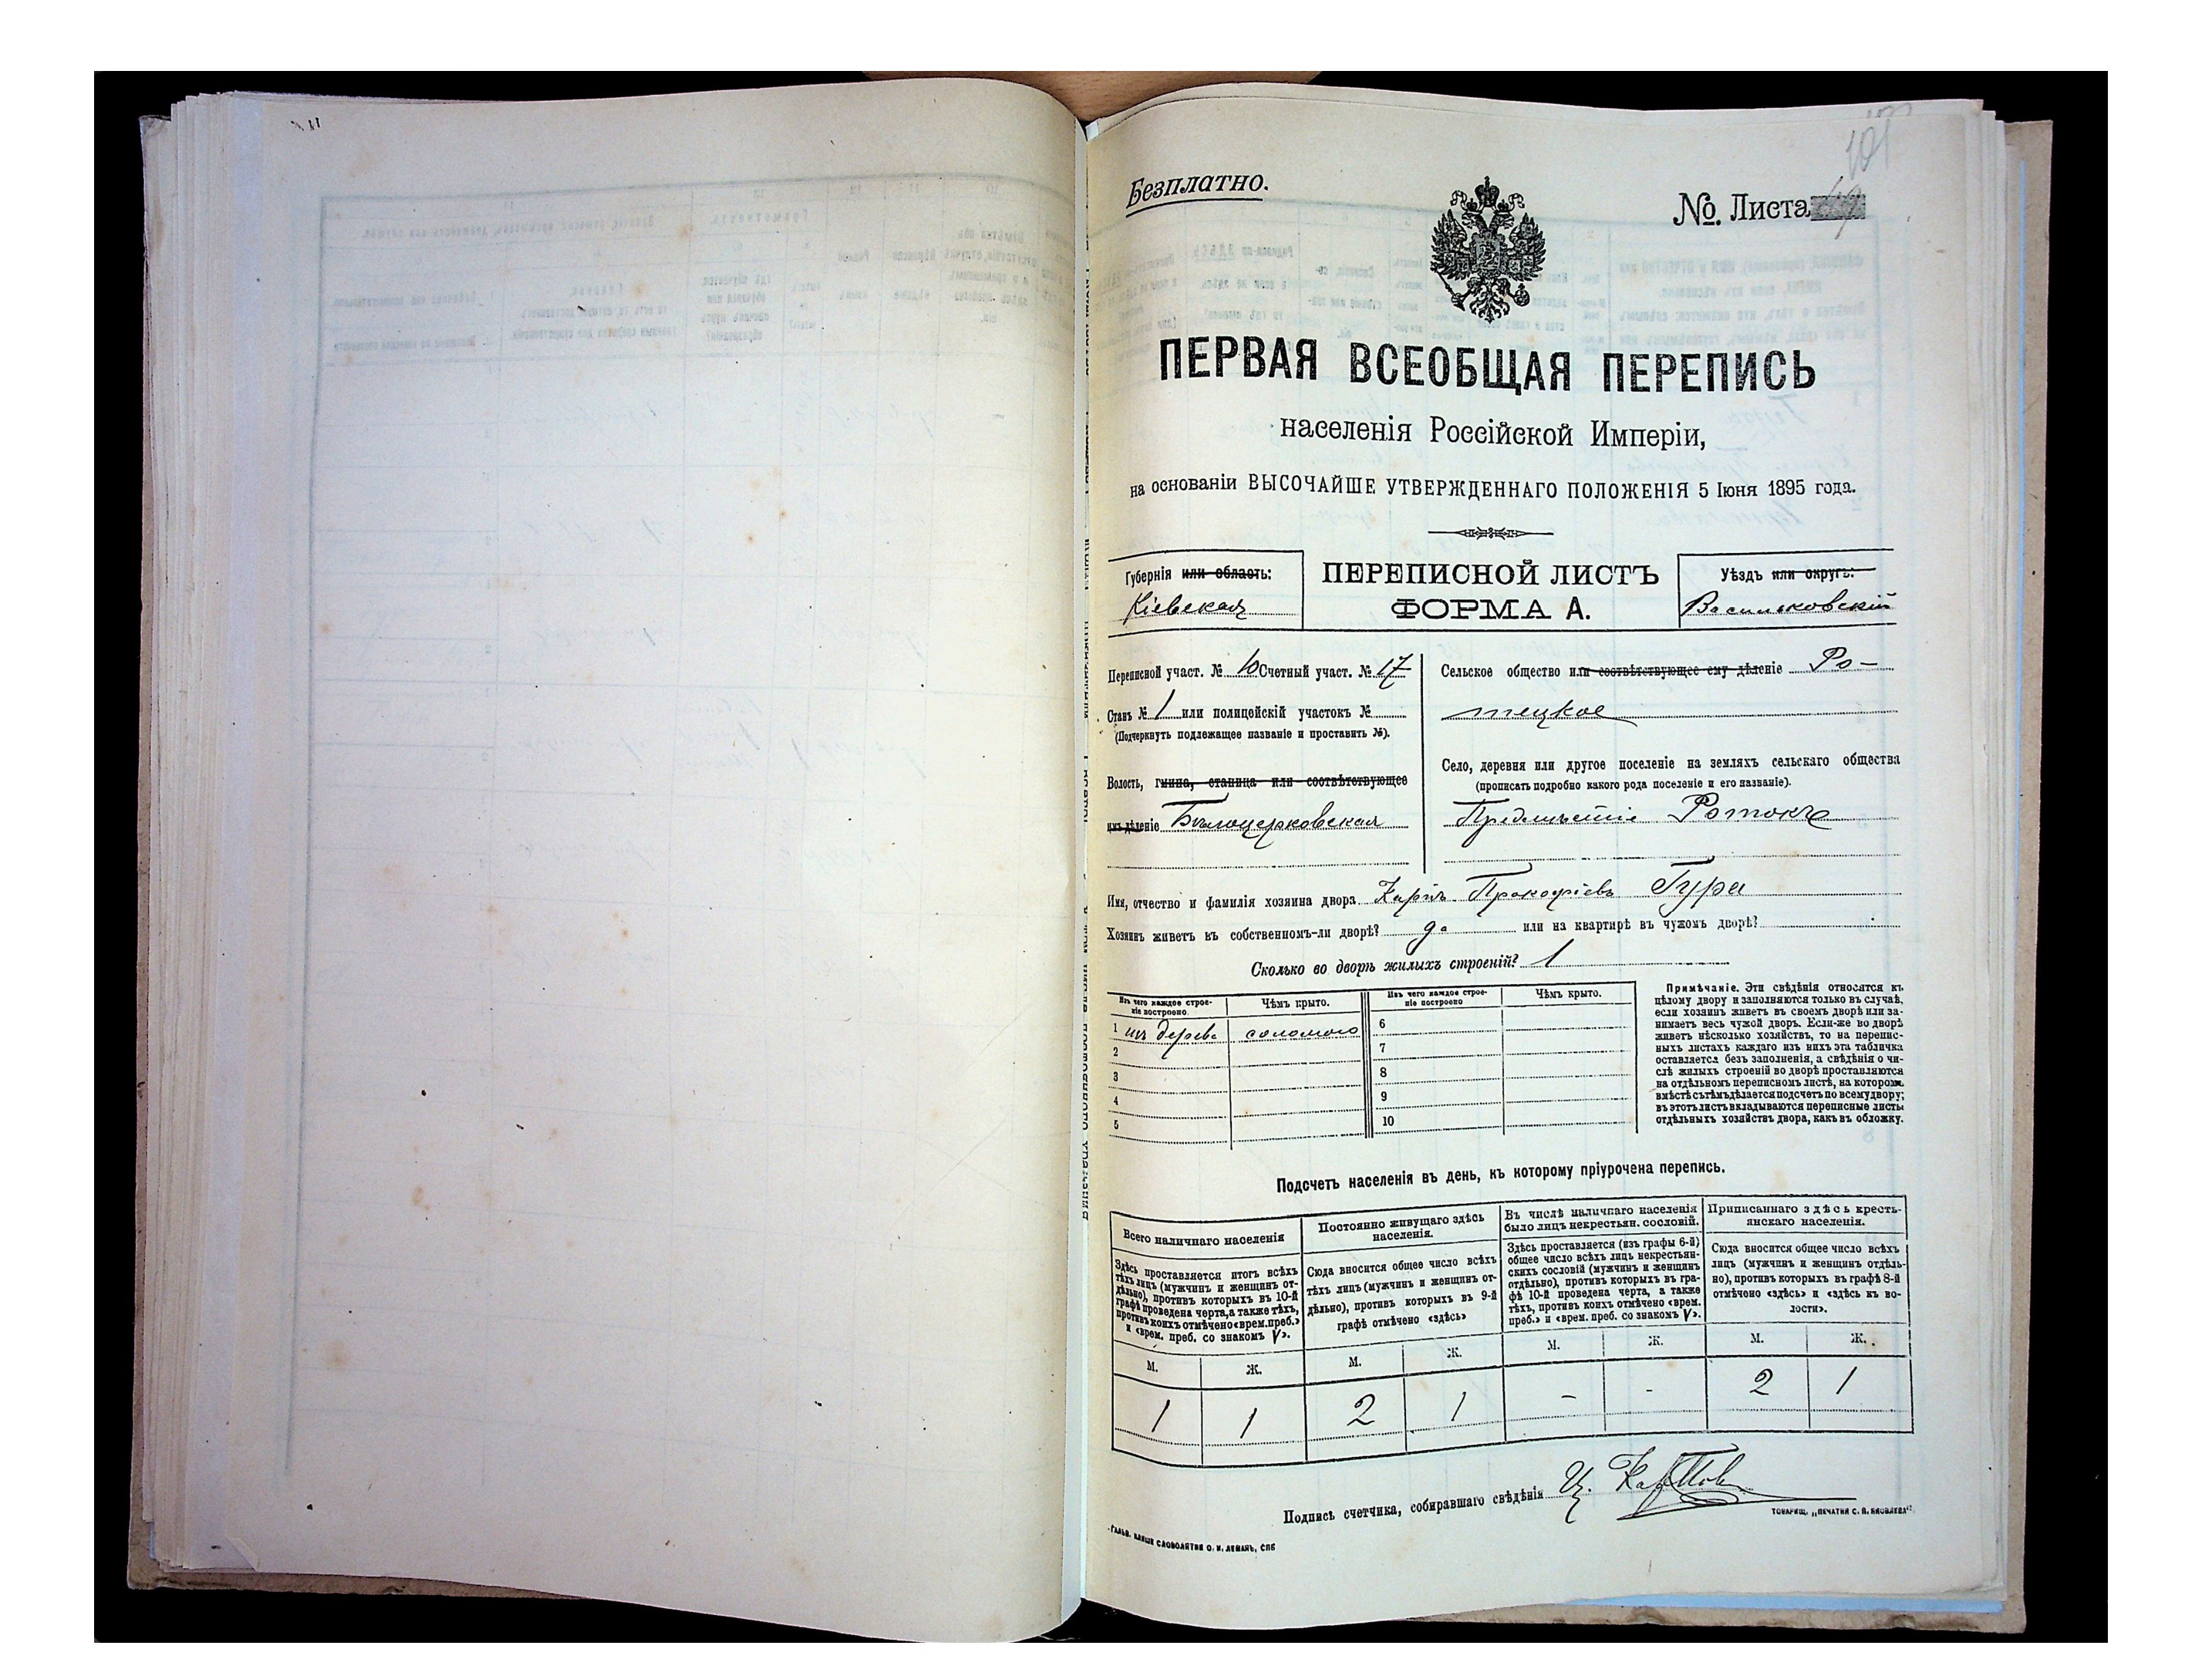 Безплатно.
№ Листа
ПЕРВАЯ ВСЕОБЩАЯ ПЕРЕПИСЬ
населенія Россійской Имперіи,
на основаніи ВЫСОЧАЙШЕ УТВЕРЖДЕННАГО ПОЛОЖЕНІЯ 5 Іюня 1895 года.
Губернія или область:
Кіевская
ПЕРЕПИСНОЙ ЛИСТЪ
ФОРМА А.
Уѣздъ или округъ:
Васильковскій
Переписной участ. № 10 Счетный участ. № 17
Станъ № 1 или полицейскій участокъ №
(Подчеркнуть подлежащее названіе и проставить №).
Волость, гмина, станица или соотвѣтствующее
имъ дѣленіе Бѣлоцерковская
Сельское общество или соотвѣтствующее ему дѣленіе Ро-
тецкое
Село, деревня или другое поселеніе на земляхъ сельскаго общества
(прописать подробно какого рода поселеніе и его названіе).
Предмѣстіе Ротокъ
Имя, отчество и фамилія хозяина двора Карпъ Прокофіевъ Гура
Хозяинъ живетъ въ собственномъ-ли дворѣ? да или на квартирѣ въ чужомъ дворѣ?
Сколько во дворѣ жилыхъ строеній? 1
Изъ чего каждое строе-
ніе построено.
Чѣмъ крыто.
Изъ чего каждое строе-
ніе построено
Чѣмъ крыто.
1 изъ дерева соломою 6
2 7
3 8
4 9
5 10
Примѣчаніе. Эти свѣдѣнія относятся къ
цѣлому двору и заполняются только въ случаѣ,
если хозяинъ живетъ въ своемъ дворѣ или за-
нимаетъ весь чужой дворъ. Если-же во дворѣ
живетъ нѣсколько хозяйствъ, то на перепис-
ныхъ листахъ каждаго изъ нихъ эта табличка
оставляется безъ заполненія, а свѣдѣнія о чи-
слѣ жилыхъ строеній во дворѣ проставляются
на отдѣльномъ переписномъ листѣ, на которомъ
вмѣстѣ съ тѣмъ дѣлается подсчетъ по всему двору;
въ этотъ листъ вкладываются переписные листы
отдѣльныхъ хозяйствъ двора, какъ въ обложку.
Подсчетъ населенія въ день, къ которому пріурочена перепись.
Всего наличнаго населенія
Здѣсь проставляется итогъ всѣхъ
тѣхъ лицъ (мужчинъ и женщинъ от-
дѣльно), противъ которыхъ въ 10-й
графѣ проведена черта, а также тѣхъ,
противъ коихъ отмѣчено «врем. преб.»
и «врем. преб. со знакомъ V».
Постоянно живущаго здѣсь
населенія.
Сюда вносится общее число всѣхъ
тѣхъ лицъ (мужчинъ и женщинъ от-
дѣльно), противъ которыхъ въ 9-й
графѣ отмѣчено «здѣсь»
Въ числѣ наличнаго населенія
было лицъ некрестьян. сословій.
Здѣсь проставляется (изъ графы 6-й)
общее число всѣхъ лицъ некрестьян-
скихъ сословій (мужчинъ и женщинъ
отдѣльно), противъ которыхъ въ гра-
фѣ 10-й проведена черта, а также
тѣхъ, противъ коихъ отмѣчено «врем.
преб.» и «врем. преб. со знакомъ V».
Приписаннаго здѣсь кресть-
янскаго населенія.
Сюда вносится общее число всѣхъ
лицъ (мужчинъ и женщинъ отдѣль-
но), противъ которыхъ въ графѣ 8-й
отмѣчено «здѣсь» и «здѣсь къ во-
лости».
М. Ж. М. Ж. М. Ж. М. Ж.
1 1 2 1 - - 2 1
Подпись счетчика, собиравшаго свѣдѣнія
ГАЛЬВ. КЛИШЕ СЛОВОЛИТНИ О. И. ЛЕМАНЪ, СПБ
ТОВАРИЩ. „ПЕЧАТНЯ С. П. ЯКОВЛЕВА"